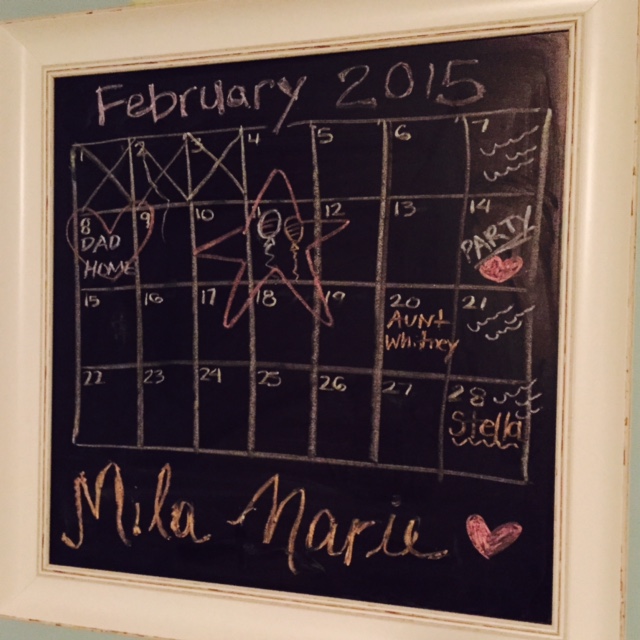 February 2015
1 2 3 4 5 6 7
8 9 10 11 12 13 14
DAD
HOME
PARTY
15 16 17 18 19 20 21
Aunt
Whitney
22 23 24 25 26 27 28
Stella
Mila Marie